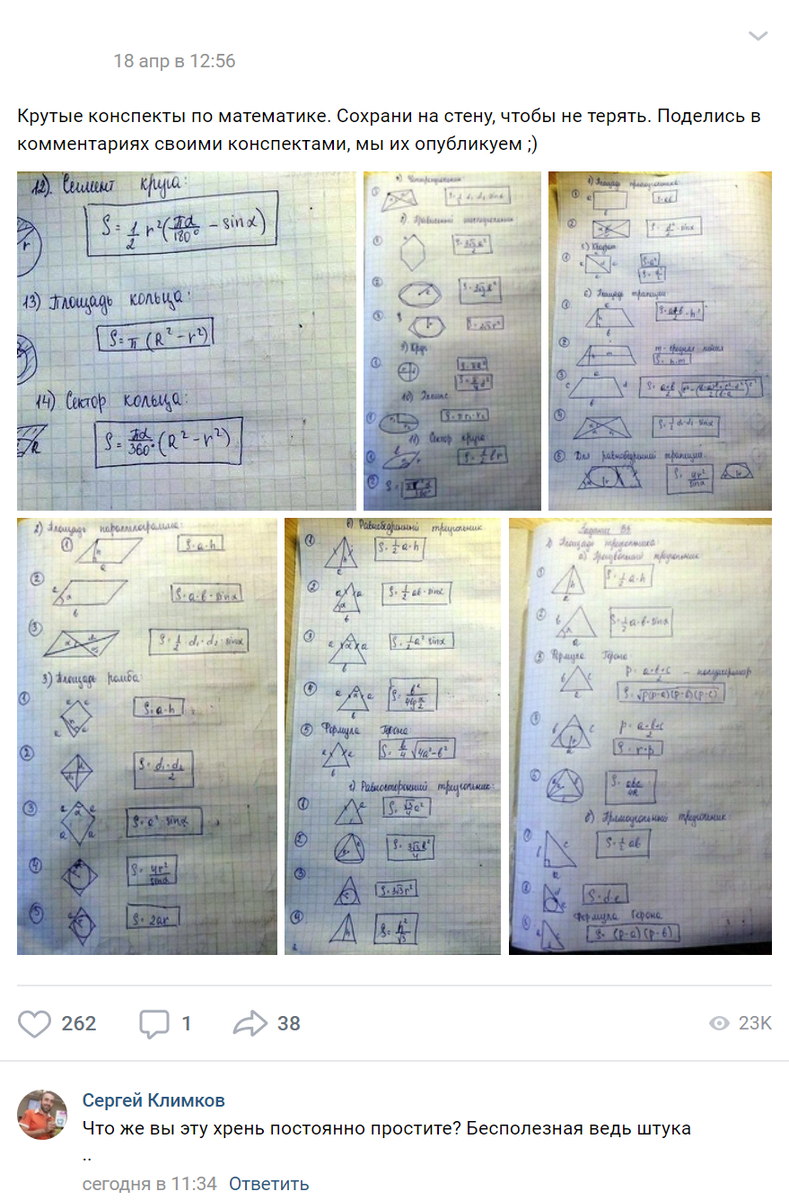 18 апр в 12:56
Крутые конспекты по математике. Сохрани на стену, чтобы не терять. Поделись в
комментариях своими конспектами, мы их опубликуем ;)
12). Сегмент круга:
S = 1/2 r²(πα/180° − sinα)
r
13) Площадь кольца:
S = π (R² − r²)
14) Сектор кольца:
S = πα/360° (R² − r²)
R
9) Круг
11) Сектор круга
с) Квадрат
е) Площадь трапеции
m - средняя линия
S = h·m
Для равнобедренной трапеции
S = 4r²/sinα
2) Площадь параллелограмма:
① S = a·h
② S = a·b·sinα
③ S = 1/2 d₁·d₂·sinα
3) Площадь ромба:
① S = a·h
② S = d₁·d₂/2
③ S = a²·sinα
④ S = 4r²/sinα
⑤ S = 2ar
в) Равнобедренный треугольник
① S = 1/2 a·h
② S = 1/2 ab·sinα
③ S = 1/2 a²·sinα
⑤ Формула Герона
S = b/4 √4a²−b²
г) Равносторонний треугольник:
① S = √3/4 a²
③ S = 3√3 r²
④ S = h²/√3
а) Произвольный треугольник:
S = 1/2 a·h
S = 1/2 a·b·sinα
Формула Герона
p = a+b+c/2 — полупериметр
S = √p(p−a)(p−b)(p−c)
p = a+b+c/2
S = r·p
б) Прямоугольный треугольник
S = 1/2 ab
S = d·e
Формула Герона
S = (p−a)(p−b)
262
1
38
23K
Сергей Климков
Что же вы эту хрень постоянно простите? Бесполезная ведь штука
..
сегодня в 11:34 Ответить